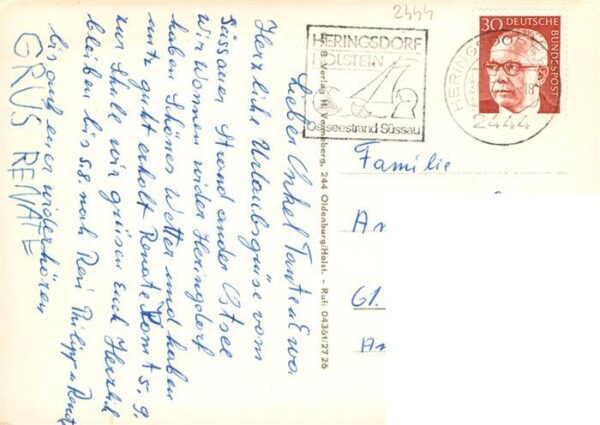 2444
HERINGSDORF
HOLSTEIN
Ostseestrand Süssau
30 DEUTSCHE
BUNDESPOST
HERINGSDORF
18
2444
Verlag H. 244 Oldenburg/Holst. - Ruf: 04361/2726
Lieber Onkel Tante Ewa
Herzliche Urlaubsgrüse vom
Süssauer Strand an der Ostsee
wir wonnen wider Heringsdorf
haben Schönes Wetter und haben
uns gukt erholt Renate kom 5.9.
zur Schule wir grüsen Euch Herzlich
bleiben bis 5.8. nach Rest Philipp u Renate
bis auf euer widerhören
GRUS RENATE
Familie
An
61.